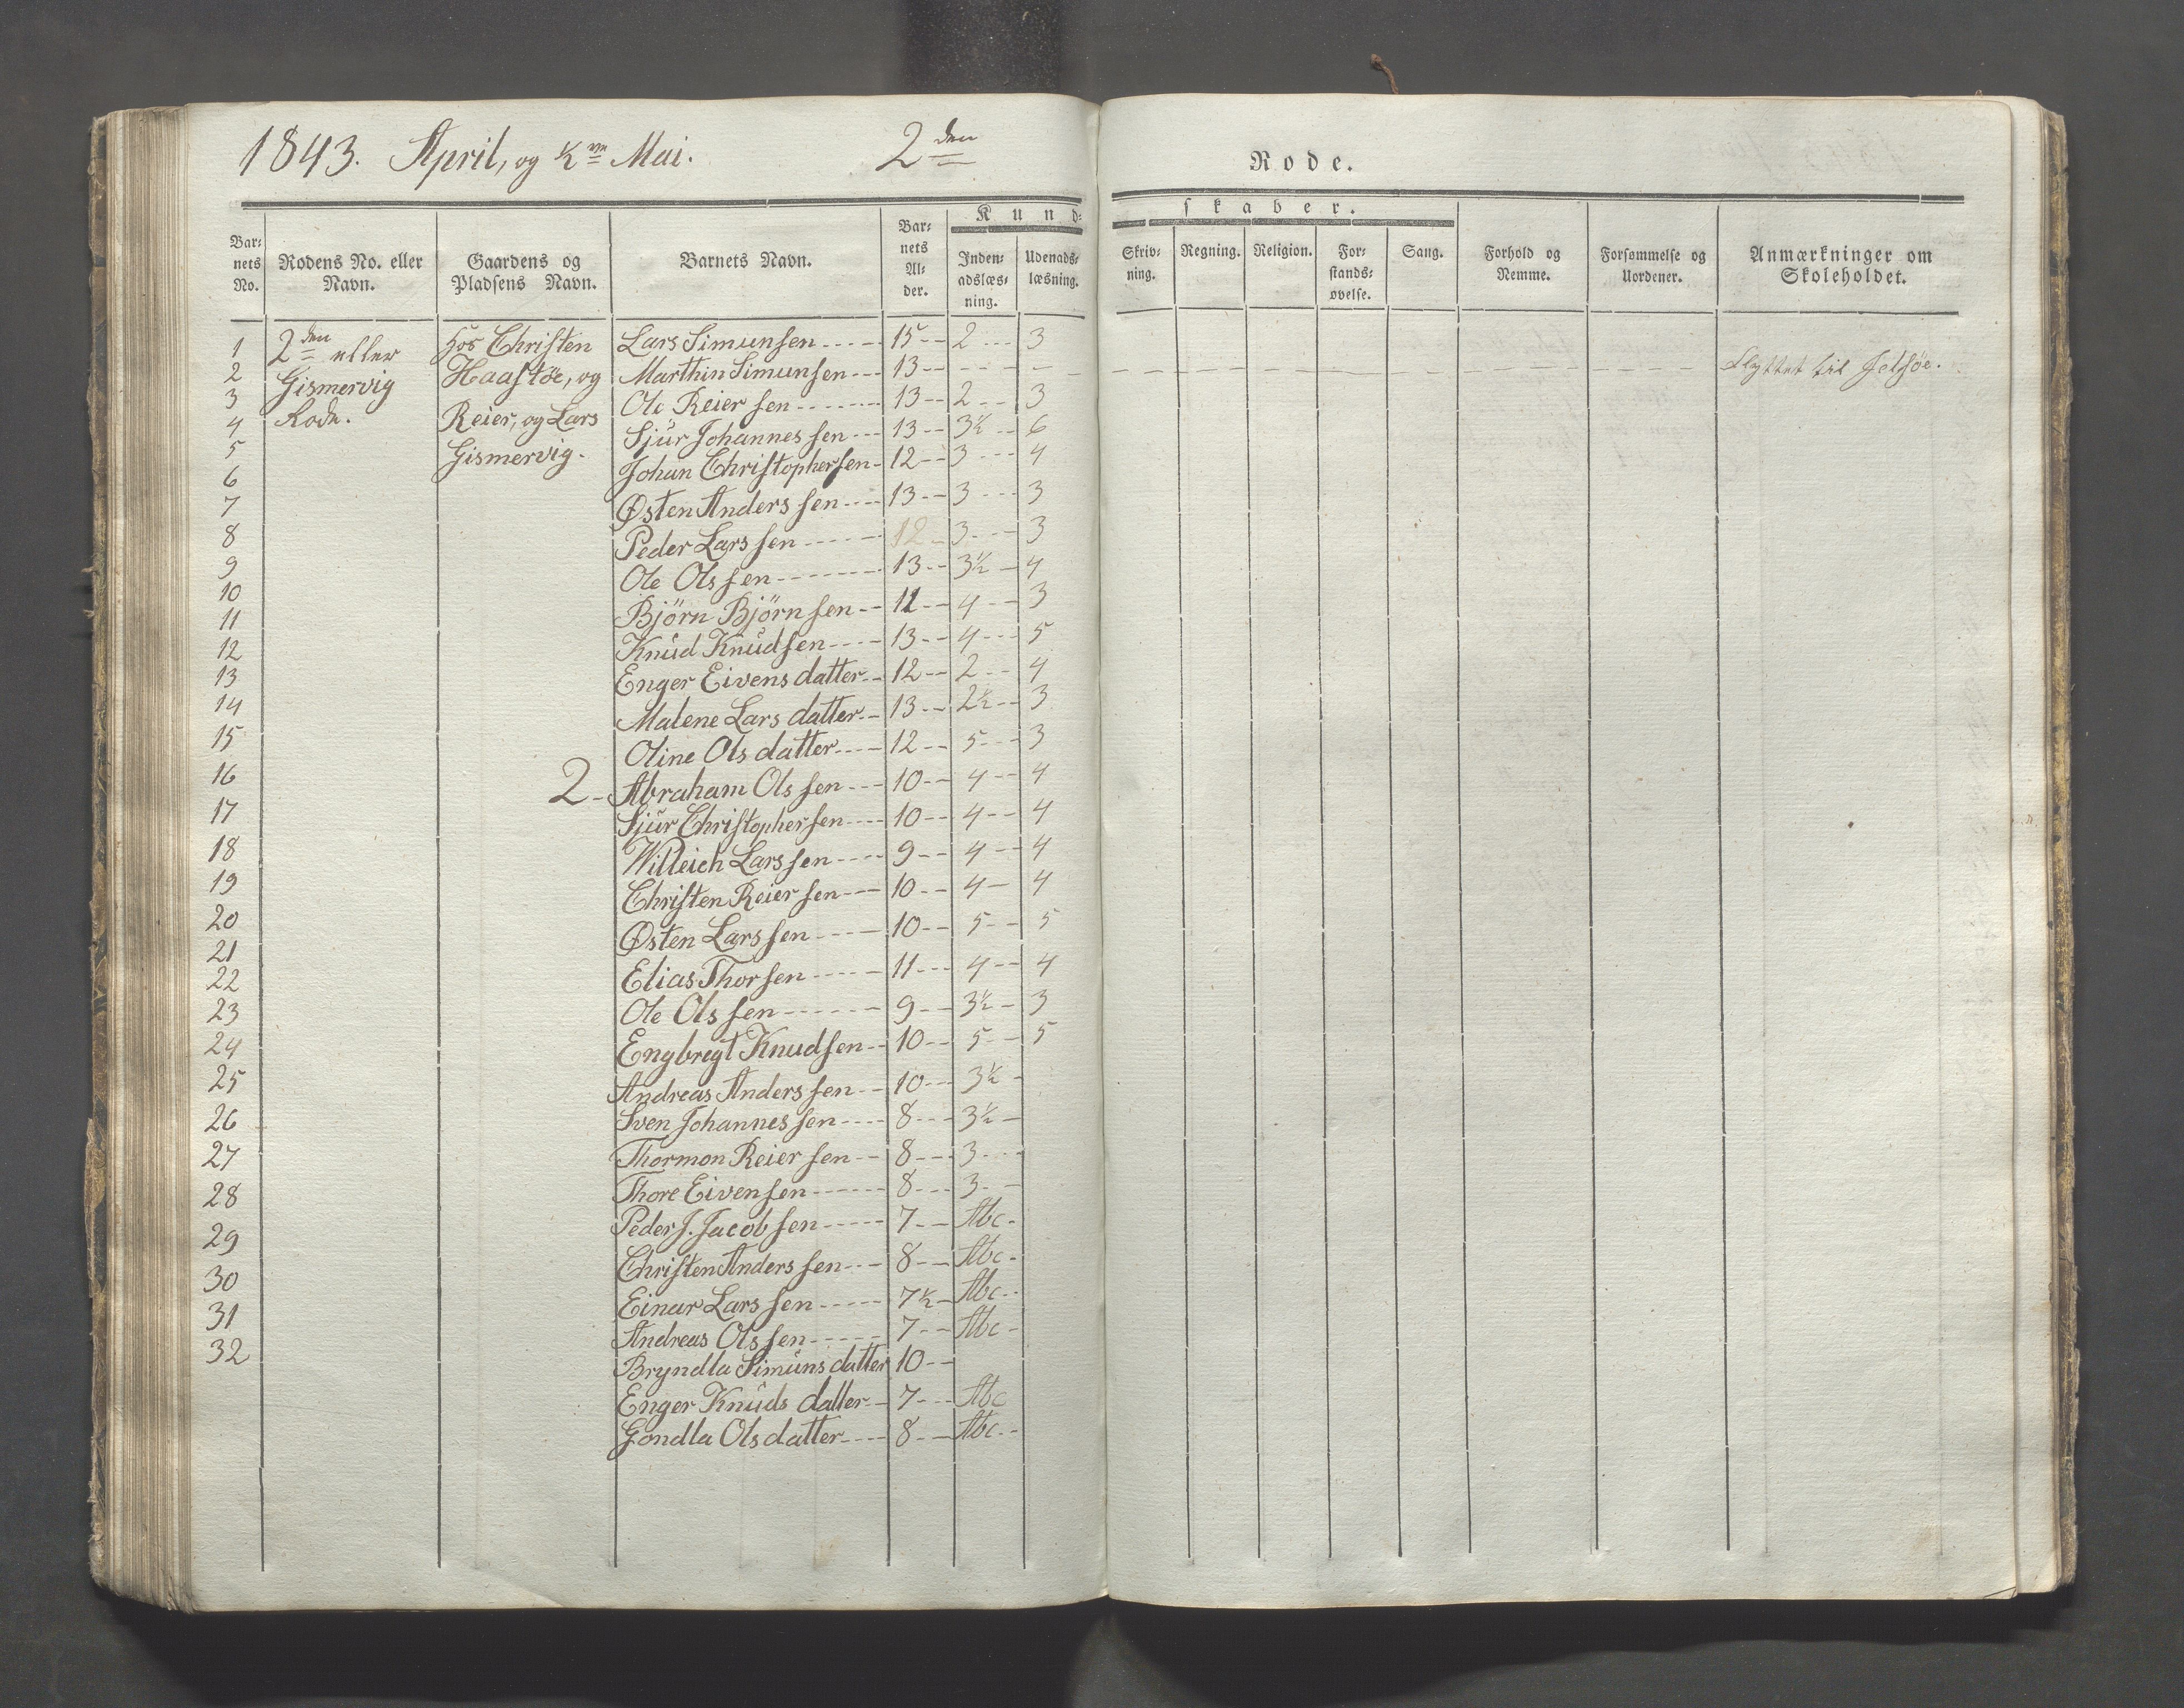 1843. April, og ½ Mai. 2den Rode.
Kund- skaber.
Bar- nets No. Rodens No. eller Navn. Gaardens og Pladsens Navn. Barnets Navn. Bar- nets Al- der. Inden- adslæs- ning. Udenads- læsning. Skriv- ning. Regning. Religion. For- stands- øvelse. Sang. Forhold og Nemme. Forsømmelse og Uordener. Anmærkninger om Skoleholdet.
1 2den eller hos Christen Lars Simunsen 15 2 3
2 Gismervig Haastøe, og Marthin Simunsen 13 Flyttet til Jelsøe.
3 Rode. Reier, og Lars Ole Reiersen 13 2 3
4 Gismervig. Sjur Johannessen 13 3½ 6
5 Johan Christophersen 12 3 4
6 Østen Anderssen 13 3 3
7 Peder Larssen 12 3 3
8 Ole Olssen 13 3½ 4
9 Björn Björnsen 11 4 3
10 Knud Knudsen 13 4 5
11 Enger Eivensdatter 12 2 4
12 Malene Larsdatter 13 2½ 3
13 Oline Olsdatter 12 5 3
14 2 Abraham Olssen 10 4 4
15 Sjur Christophersen 10 4 4
16 Willeich Larssen 9 4 4
17 Christen Reiersen 10 4 4
18 Østen Larssen 10 5 5
19 Elias Thorsen 11 4 4
20 Ole Olssen 9 3½ 3
21 Engbregt Knudsen 10 5 5
22 Andreas Anderssen 10 3½
23 Sven Johannessen 8 3½
24 Thormon Reiersen 8 3
25 Thore Eivensen 8 3
26 Peder J. Jacobsen 7 Abc
27 Christen Anderssen 8 Abc
28 Einar Larssen 7½ Abc
29 Andreas Olssen 7 Abc
30 Bryndla Simunsdatter 10
31 Enger Knudsdatter 7 Abc
32 Gondla Olsdatter 8 Abc